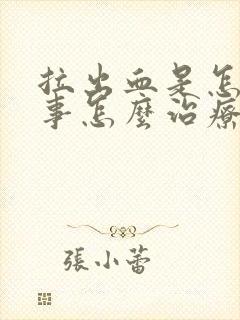 拉出血是怎
事怎麼治療
張小蕾